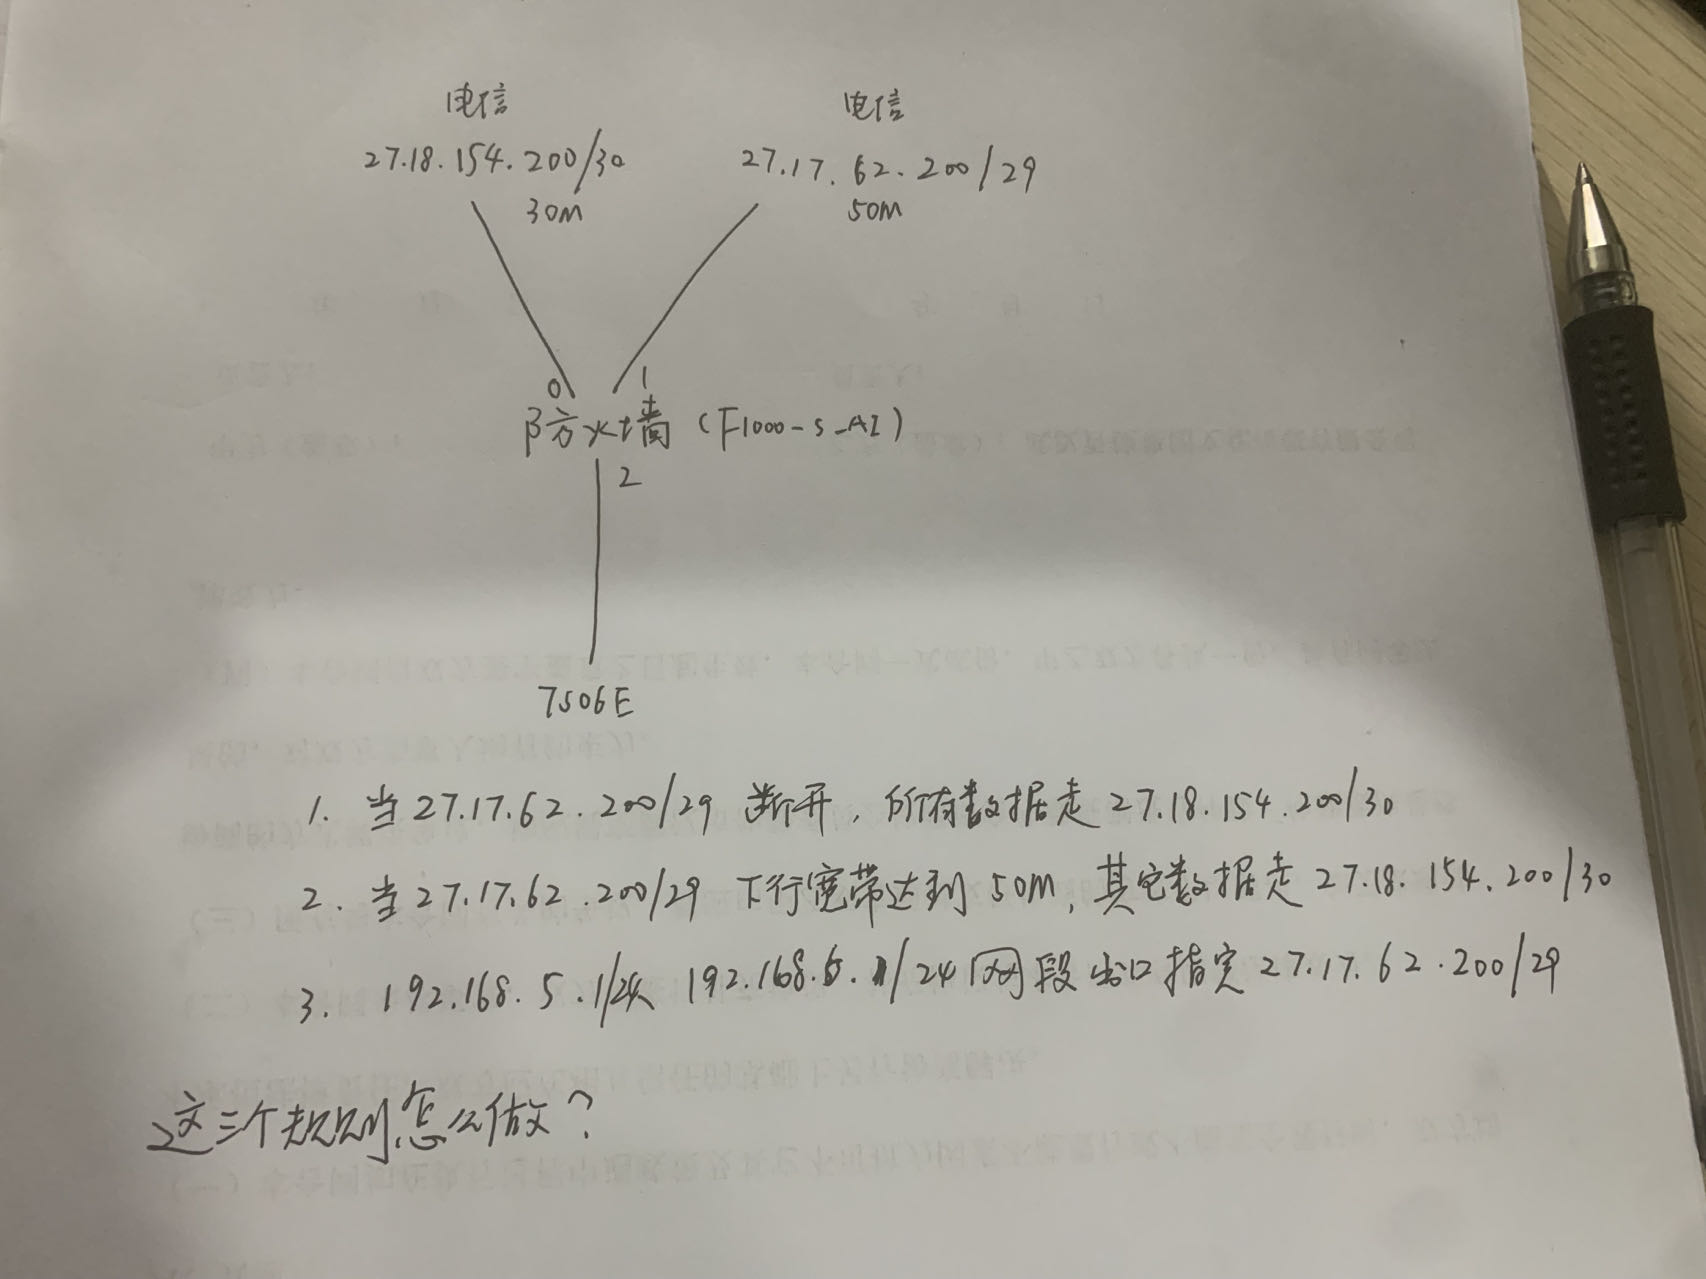 电信
电信
27.18.154.200/30
27.17.62.200/29
30M
50M
0
1
防火墙（F1000-S-AI）
2
7506E
1. 当27.17.62.200/29 断开，所有数据走27.18.154.200/30
2. 当27.17.62.200/29 下行宽带达到50M，其它数据走27.18.154.200/30
3. 192.168.5.1/24 192.168.6.1/24网段出口指定27.17.62.200/29
这三个规则怎么做？